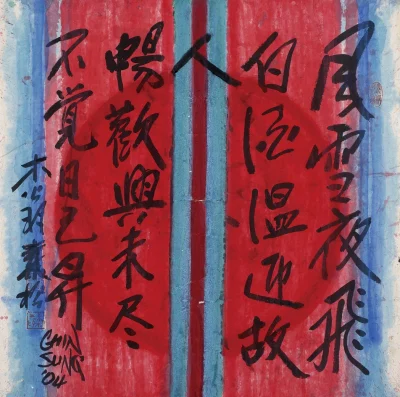 風雪夜飛
白酒溫迎故
人
暢歡興未尽
不覺日已昇
CHIN
SUNG
'04